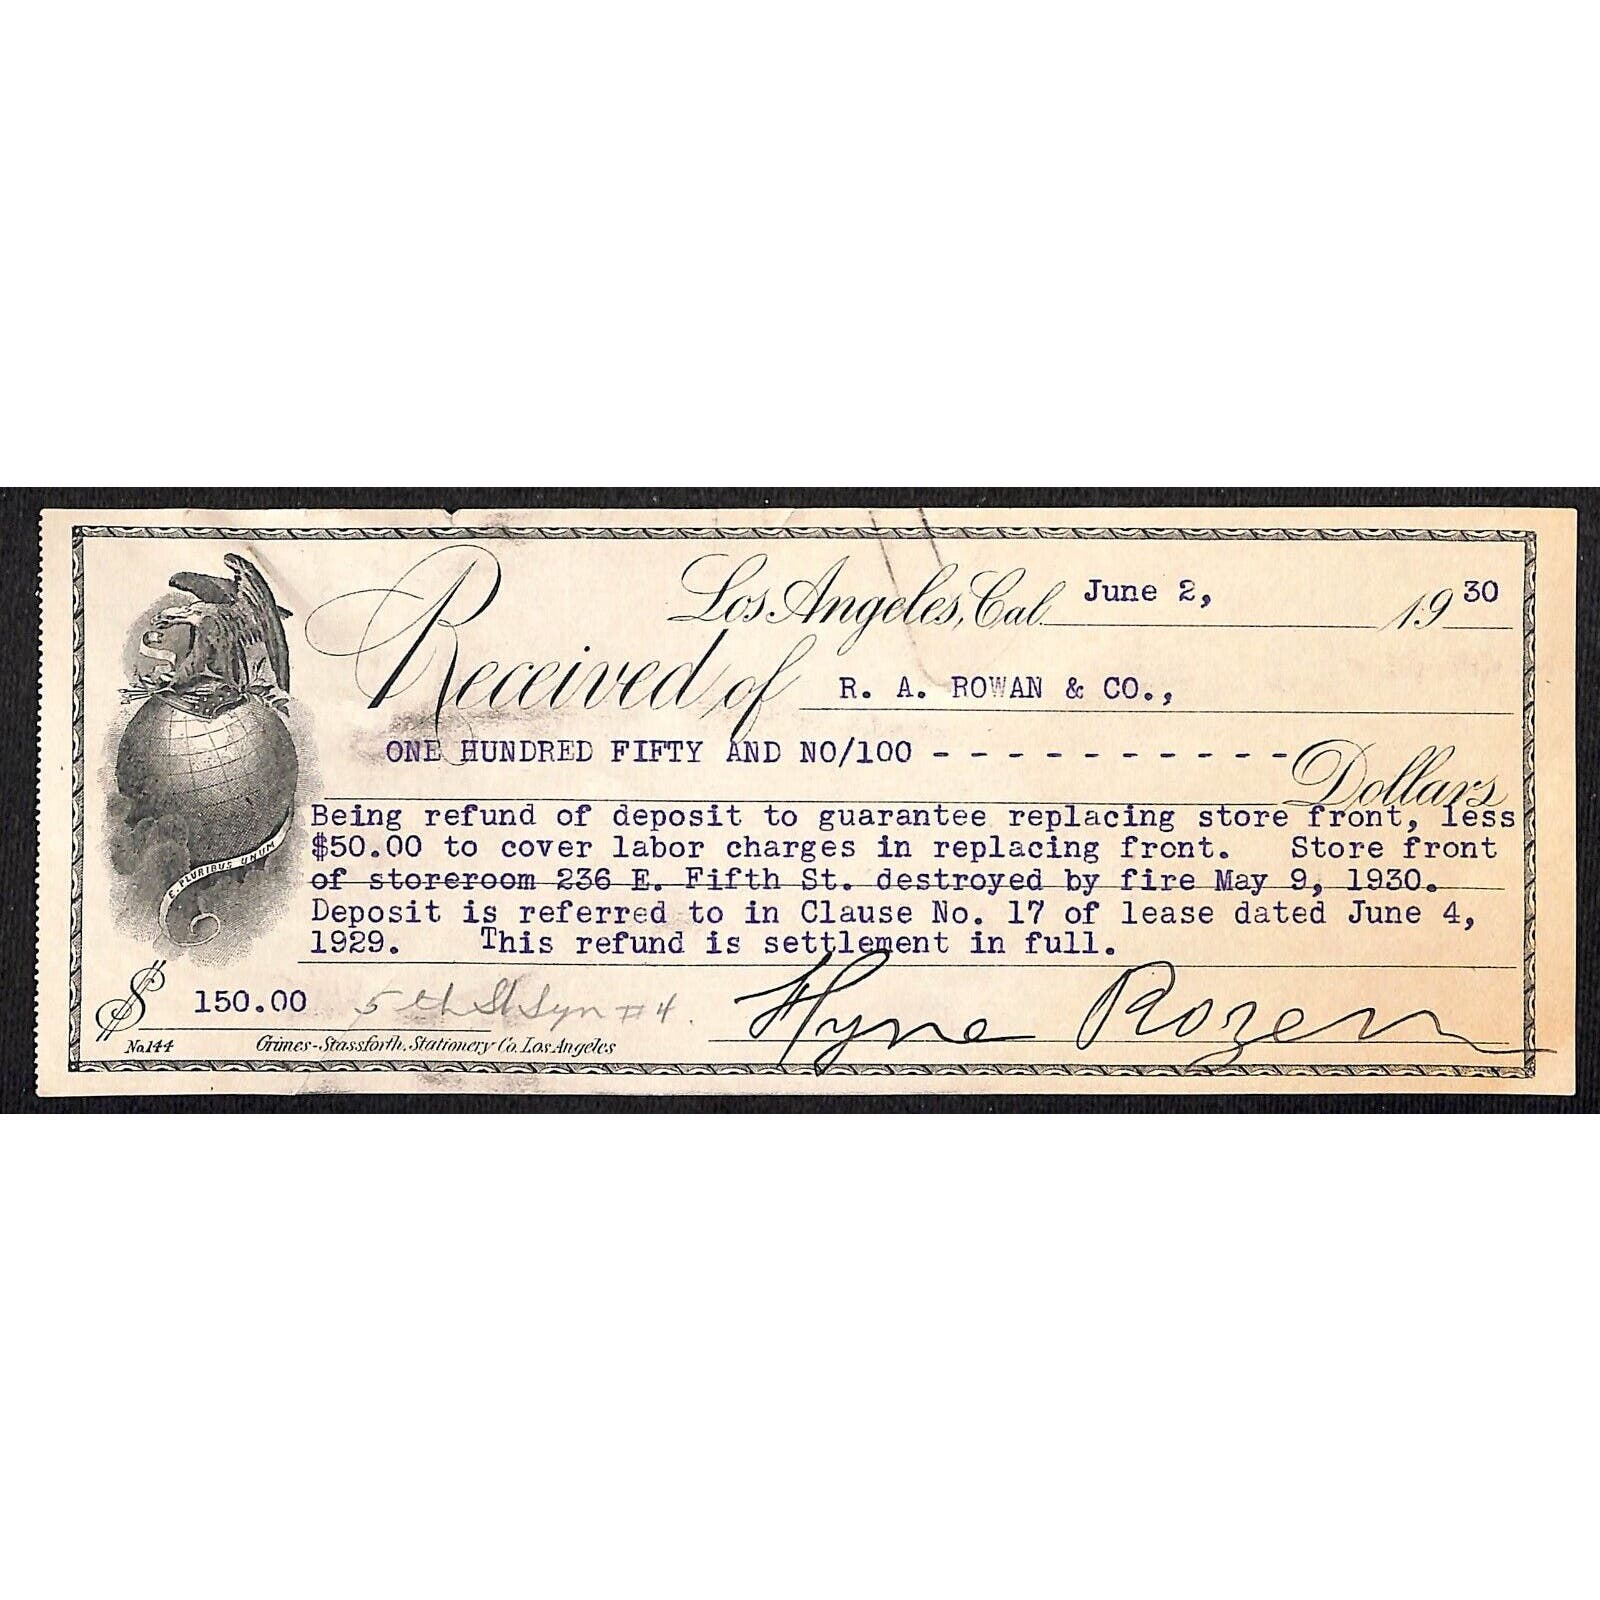 Los Angeles, Cal. June 2, 1930
Received of R. A. ROWAN & CO.,
ONE HUNDRED FIFTY AND NO/100 - - - - - - - - - - - Dollars
Being refund of deposit to guarantee replacing store front, less
$50.00 to cover labor charges in replacing front. Store front
of storeroom 236 E. Fifth St. destroyed by fire May 9, 1930.
Deposit is referred to in Clause No. 17 of lease dated June 4,
1929. This refund is settlement in full.
E. PLURIBUS UNUM
$ 150.00 5th St Syn #4. Hyne Rozen
No. 144 Grimes-Stassforth. Stationery Co. Los Angeles